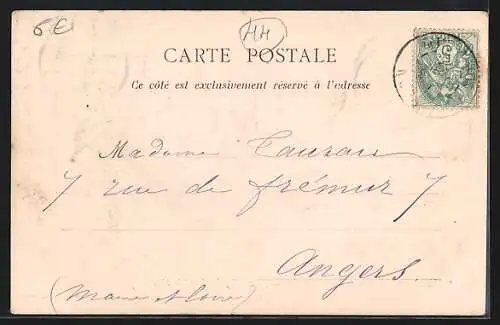 6€
HH
CARTE POSTALE
Ce côté est exclusivement réservé à l'adresse
5
Madame Tauzau
7 rue de frémur 7
Angers
(Maine et Loire)